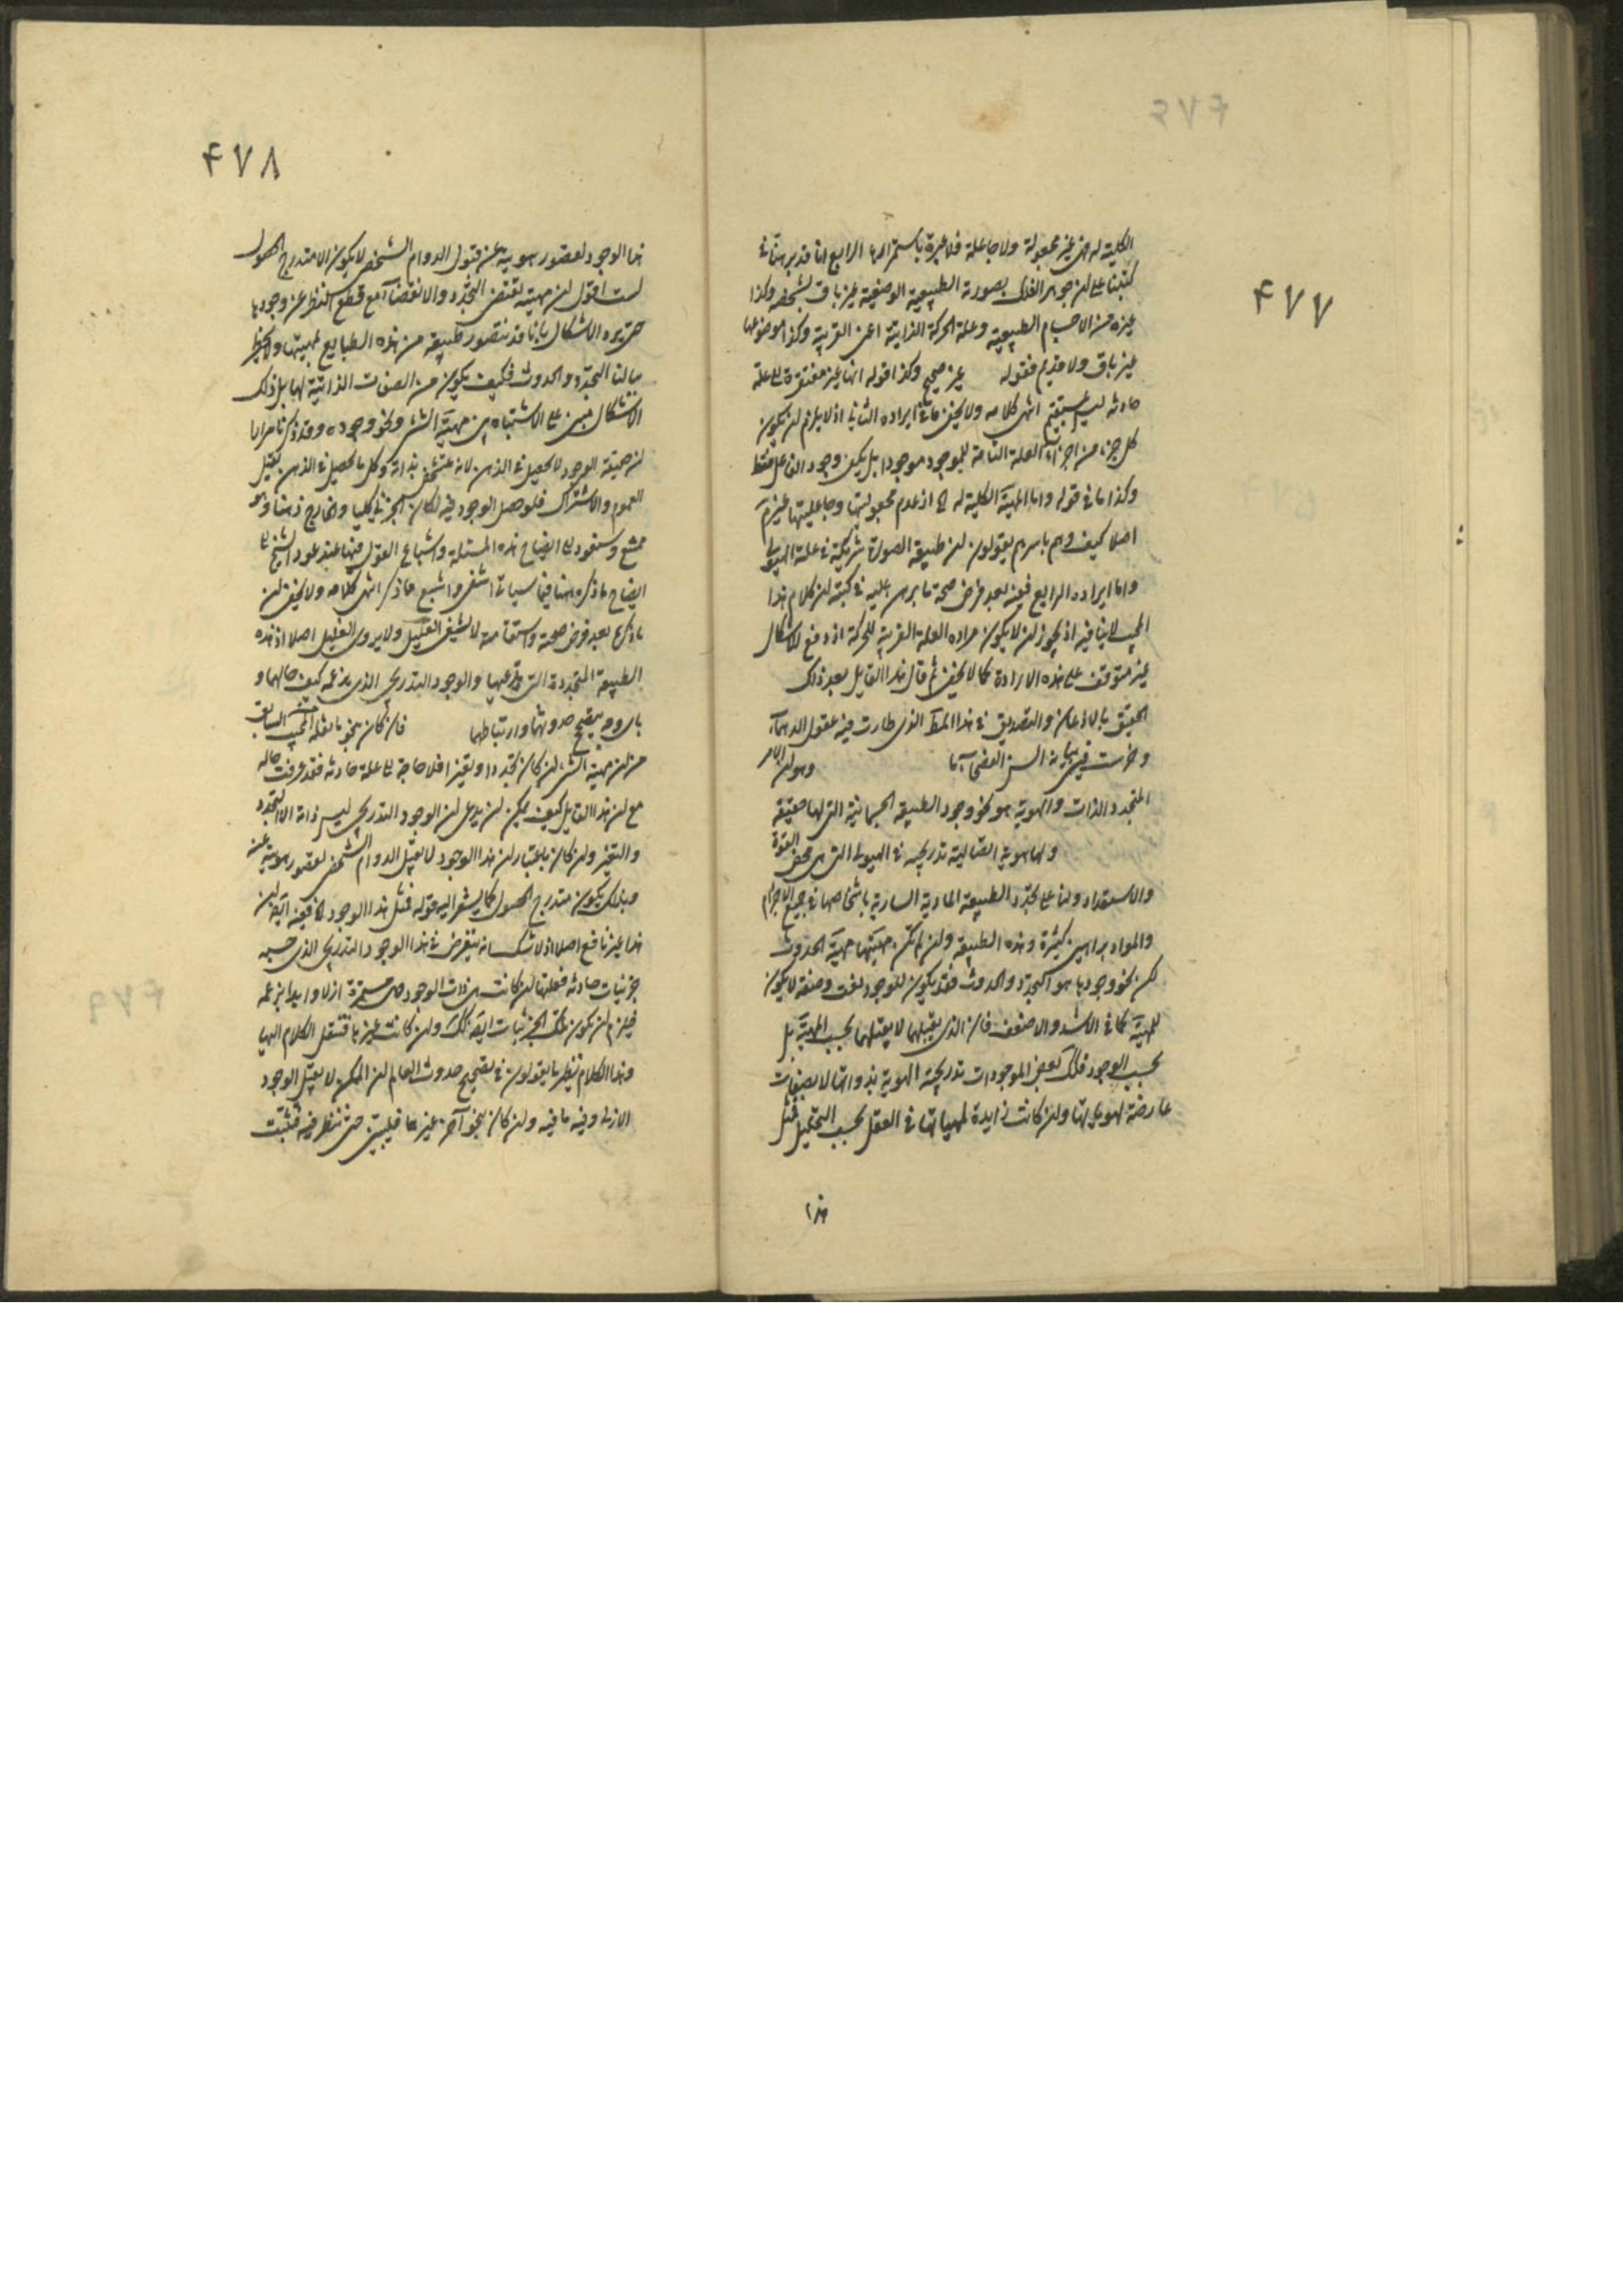 ۴۷۷
الكلية له فهى غير مجعولة ولا جاعلة فلا عبرة باستمرارها الرابع انا قد برهنا فى
كتبنا على ان جوهر الفلك بصورته الطبيعية الوضعية غير باق بشخصه وكذا
غيره من الاجسام الطبيعية وعلة الحركة الذاتية اعنى القريبة وكذا موضوعها
غير باق ولا قديم فقوله غير صحيح وكذا قوله انها غير مفتقرة الى علة
حادثه ليس بمستقيم انتهى كلامه ولا يخفى ما فى ايراده الثانى اذ لا يلزم ان يكون
كل جزء من اجزاء العلة التامة للموجود موجودا بل يكفى وجود الفاعل فقط
وكذا ما فى قوله واما المهية الكلية له الخ اذ عدم مجعوليتها وجاعليتها غير تم
اصلا كيف وهم باسرهم يقولون ان طبيعة الصورة شريكة فى علة الهيولى
واما ايراده الرابع فهو بعد فرض صحة ما برهن عليه فى كتبه ان كلام هذا
المجيب لا ينافيه اذ يجوز ان لا يكون مراده العلة القريبة للحركة اذ دفع الاشكال
غير متوقف على هذه الارادة كما لا يخفى ثم قال هذا القايل بعد ذلك
الحقيق بالاذعان والتصديق فى هذا المط الذى طارت فيه عقول الدهماء
وخرست فى بيانه السن الفضحاء ما وهو ان الامر
المتجدد الذات والهوية هو نحو وجود الطبيعة الجسمانية التى لها حقيقة
ولها هوية اتصالية تدريجيه فى الهيولى التى هى محض القوة
والاستعداد ولنا على تجدد الطبيعة المادية السارية باشخاصها فى جميع الاجرام
والمواد براهين كثيرة وهذه الطبيعة وان لم تكن مهيتها مهية الحدوث
لكن نحو وجودها هو التجدد والحدوث فقد يكون للوجود نعت وصفة لا يكون
للمهية كما فى الاشد والاضعف فان الذى يقبلهما لا يقبلهما بحسب المهية بل
بحسب الوجود فكذلك بعض الموجودات تدريجية الهوية بذواتها لا بصفات
عارضة لهوياتها وان كانت زايدة لمهياتها فى العقل بحسب التحليل فمثل
هذا
۴۷۸
هذا الوجود لقصور هويته عن قبول الدوام الشخصى لا يكون الا متدرج الحصول
لست اقول ان مهيته تقتضى التجدد والانقضاء مع قطع النظر عن وجودها
حتى يرد الاشكال بانا قد نتصور طبيعة من هذه الطبايع لمهيتها ولا يخطر
ببالنا التجدد والحدوث فكيف يكون من الصفات الذاتية لها بل ذلك
الاشكال مبنى على الاشتباه بين مهية الشىء ونحو وجوده وقد ذكرنا مرارا
ان حقيقة الوجود لا يحصل فى الذهن لانه متشخص بذاته وكل ما يحصل فى الذهن يقبل
العموم والاشتراك فلو حصل الوجود فيه لكان الجزئى كليا والخارج ذهنا وهو
ممتنع وسنعود الى ايضاح هذه المسئلة واشباع القول فيها عند عود الشيخ الى
ايضاح ما ذكره هنا فيما سياتى اشفى واشبع مما ذكر انتهى كلامه ولا يخفى ان
ما ذكره بعد فرض صحته واستقامته لا يشفى العليل ولا يروى الغليل اصلا اذ هذه
الطبيعة المتجددة التى يدعيها والوجود التدريجى الذى يزعمه كيف حالهما و
باى وجه يصح حدوثهما وارتباطهما فان كان بنحو ما نقله المجيب السابق
من ان مهية الشىء ان كان تجددا وتغيرا فلا حاجة الى علة حادثه فقد عرفت حاله
مع ان هذا القايل كيف يمكن ان يدعى ان الوجود التدريجى ليس ذاته الا التجدد
والتغير وان كان باعتبار ان هذا الوجود لا يقبل الدوام الشخصى لقصور هويته عن
وبذلك يكون متدرج الحصول كما يشعر اليه قوله فمثل هذا الوجود الخ ففيه ايضا ان
هذا غير نافع اصلا اذ لا شك انه يفرض فى هذا الوجود التدريجى الذى حسبه
جزئيات حادثه فعلتها ان كانت هى ذات الوجود هى مستمرة ازلا وابدا بزعمه
فيلزم ان يكون تلك الجزئيات ايضا كذلك وان كانت غيرها فننقل الكلام اليها
وهذا الكلام نظير ما يقولون فى تصحيح حدوث العالم ان الممكن لا يقبل الوجود
الازلى وفيه ما فيه وان كان بنحو آخر غيرهما فليبين حتى ننظر فيه فثبت